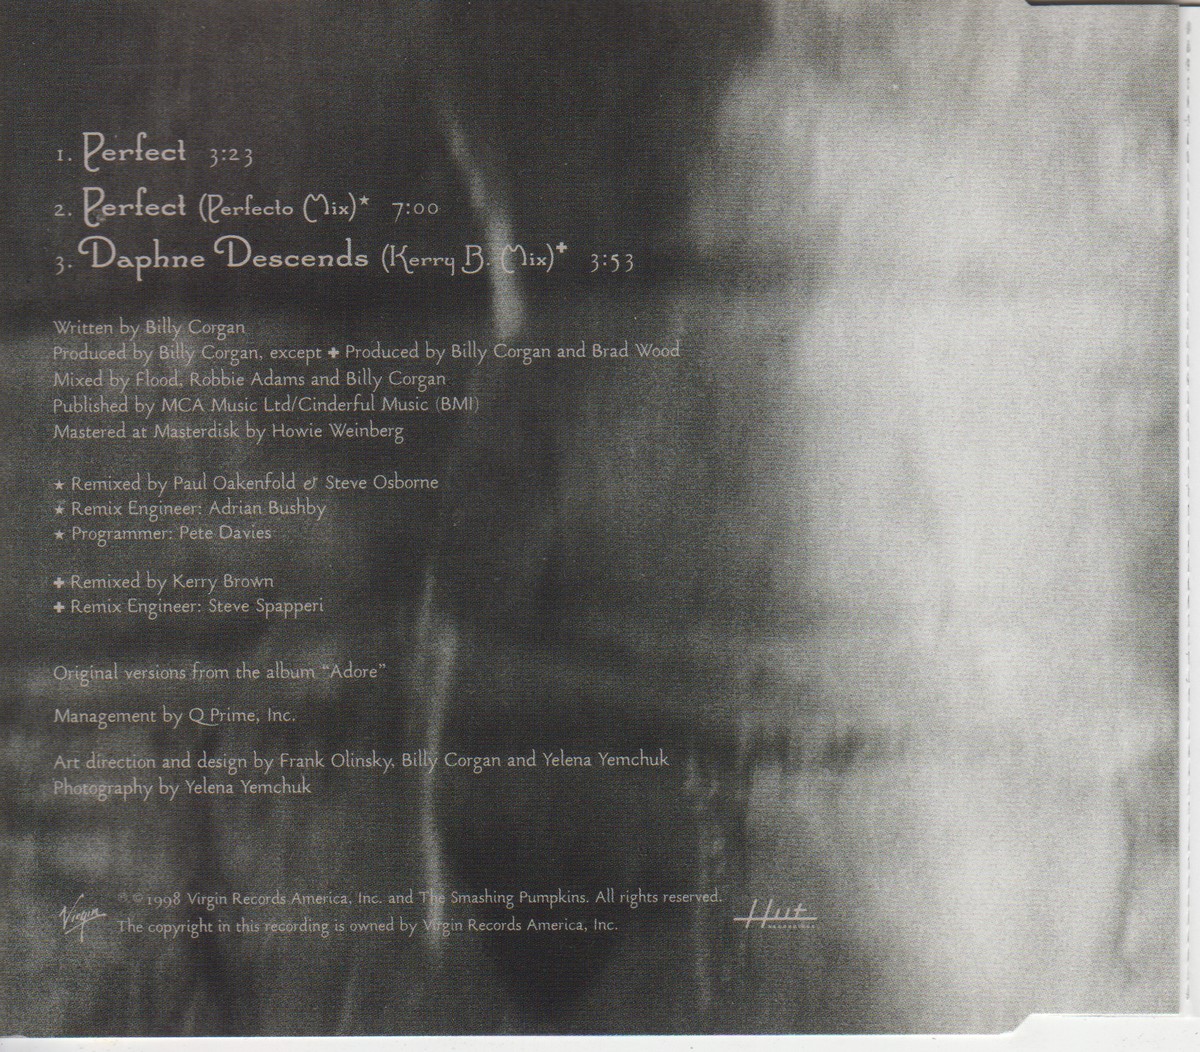 1. Perfect 3:23
2. Perfect (Perfecto Mix)★ 7:00
3. Daphne Descends (Kerry B. Mix)✚ 3:53
Written by Billy Corgan
Produced by Billy Corgan, except ✚ Produced by Billy Corgan and Brad Wood
Mixed by Flood, Robbie Adams and Billy Corgan
Published by MCA Music Ltd/Cinderful Music (BMI)
Mastered at Masterdisk by Howie Weinberg
★ Remixed by Paul Oakenfold & Steve Osborne
★ Remix Engineer: Adrian Bushby
★ Programmer: Pete Davies
✚ Remixed by Kerry Brown
✚ Remix Engineer: Steve Spapperi
Original versions from the album “Adore”
Management by Q Prime, Inc.
Art direction and design by Frank Olinsky, Billy Corgan and Yelena Yemchuk
Photography by Yelena Yemchuk
Virgin
℗ © 1998 Virgin Records America, Inc. and The Smashing Pumpkins. All rights reserved.
The copyright in this recording is owned by Virgin Records America, Inc.
Hut